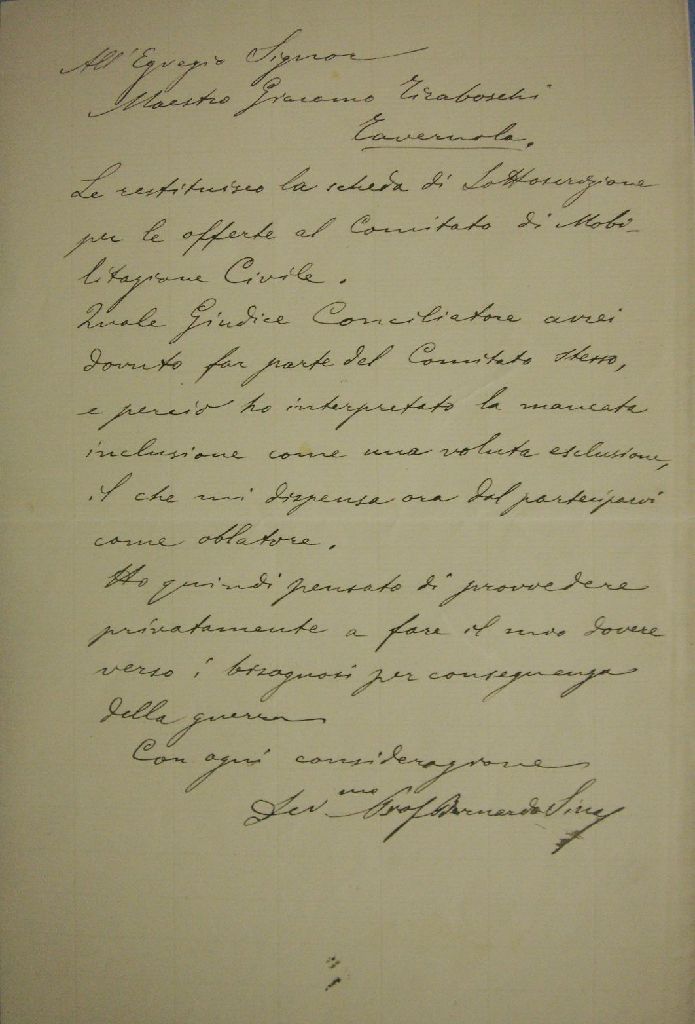 All'Egregio Signor
Maestro Giacomo Tiraboschi
Tavernola.
Le restituisco la scheda di Sottoscrizione
per le offerte al Comitato di Mobi-
litazione Civile.
Quale Giudice Conciliatore avrei
dovuto far parte del Comitato stesso,
e perciò ho interpretato la mancata
inclusione come una voluta esclusione,
il che mi dispensa ora dal parteciparvi
come oblatore.
Ho quindi pensato di provvedere
privatamente a fare il mio dovere
verso i bisognosi per conseguenza
della guerra
Con ogni considerazione
Dev.mo Prof Bernardo Sina